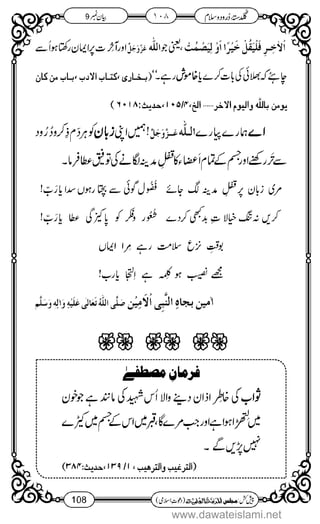 گلدستۂ درود وسلام ۱۰۸ بیان نمبر 9
الْاٰخِرِ فَلْیَقُلْ خَیْرًا اَوْ لِیَصْمُتْ یعنی، جو اللّٰہ عَزَّوَجَلَّ اور آخرت پر ایمان رکھتا ہو اسے
چاہئے کہ بھلائی کی بات کرے یا خاموش رہے۔“ (بخاری، کتاب الادب، باب من کان
یومن باللہ والیوم الاخر..... الخ، ۱۰۵/۴، حدیث: ۶۰۱۸)
اے ہمارے پیارے اللّٰہ عَزَّوَجَلَّ! ہمیں اپنی زبان کو ہر دم ذکر و دُرُود
سے تر رکھنے اور جسم کے تمام اَعضاء کا قفلِ مدینہ لگانے کی توفیق عطا فرما۔
مری زبان پر قفلِ مدینہ لگ جائے فُضُول گوئی سے بچتا رہوں سدا یاربّ!
کریں نہ تنگ خیالاتِ بد کبھی کردے شُعُور و فکر کو پاکیزگی عطا یاربّ!
بوقتِ نزع سلامت رہے مرا ایماں
مجھے نصیب ہو کلمہ ہے التجا یارب!
اٰمین بجاہِ النَّبِیِّ الْاَمِیْن صَلَّی اللّٰہُ تَعَالٰی عَلَیْہِ وَاٰلِہٖ وَسَلَّم
فرمانِ مصطفےٰ
ثواب کی خاطر اذان دینے والا اُس شہید کی مانند ہے جو خون
میں لتھڑا ہوا ہے اور جب مرے گا، قبر میں اس کے جسم میں کیڑے
نہیں پڑیں گے ۔
(الترغیب والترھیب، ۱ / ۱۳۹، حدیث: ۳۸۴)
108
www.dawateislami.net